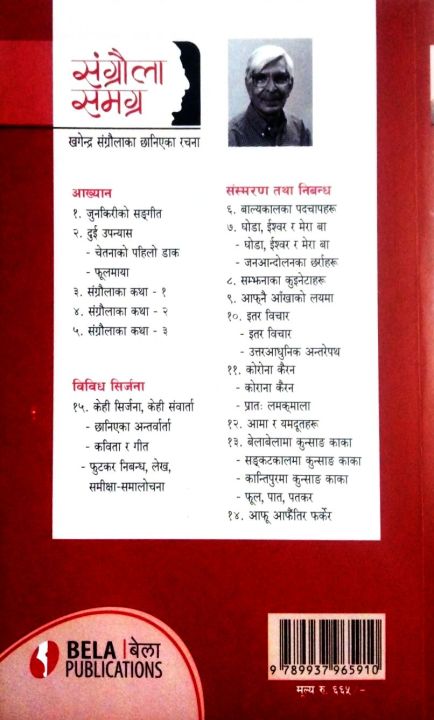 संग्रौला
समग्र
खगेन्द्र संग्रौलाका छानिएका रचना
आख्यान
१. जुनकिरीको सङ्गीत
२. दुई उपन्यास
- चेतनाको पहिलो डाक
- फूलमाया
३. संग्रौलाका कथा - १
४. संग्रौलाका कथा - २
५. संग्रौलाका कथा - ३
विविध सिर्जना
१५. केही सिर्जना, केही संवार्ता
- छानिएका अन्तर्वार्ता
- कविता र गीत
- फुटकर निबन्ध, लेख,
समीक्षा-समालोचना
संस्मरण तथा निबन्ध
६. बाल्यकालका पदचापहरू
७. घोडा, ईश्वर र मेरा बा
- घोडा, ईश्वर र मेरा बा
- जनआन्दोलनका छर्राहरू
८. सम्झनाका कुइनेटाहरू
९. आफ्नै आँखाको लयमा
१०. इतर विचार
- इतर विचार
- उत्तरआधुनिक अन्तरेपथ
११. कोरोना कैरन
- कोराना कैरन
- प्रातः लमकमाला
१२. आमा र यमदूतहरू
१३. बेलाबेलामा कुन्साङ काका
- सङ्कटकालमा कुन्साङ काका
- कान्तिपुरमा कुन्साङ काका
- फूल, पात, पतकर
१४. आफू आफैँतिर फर्केर
BELA | बेला
PUBLICATIONS
9 789937 965910
मूल्य रु. ६६५ -